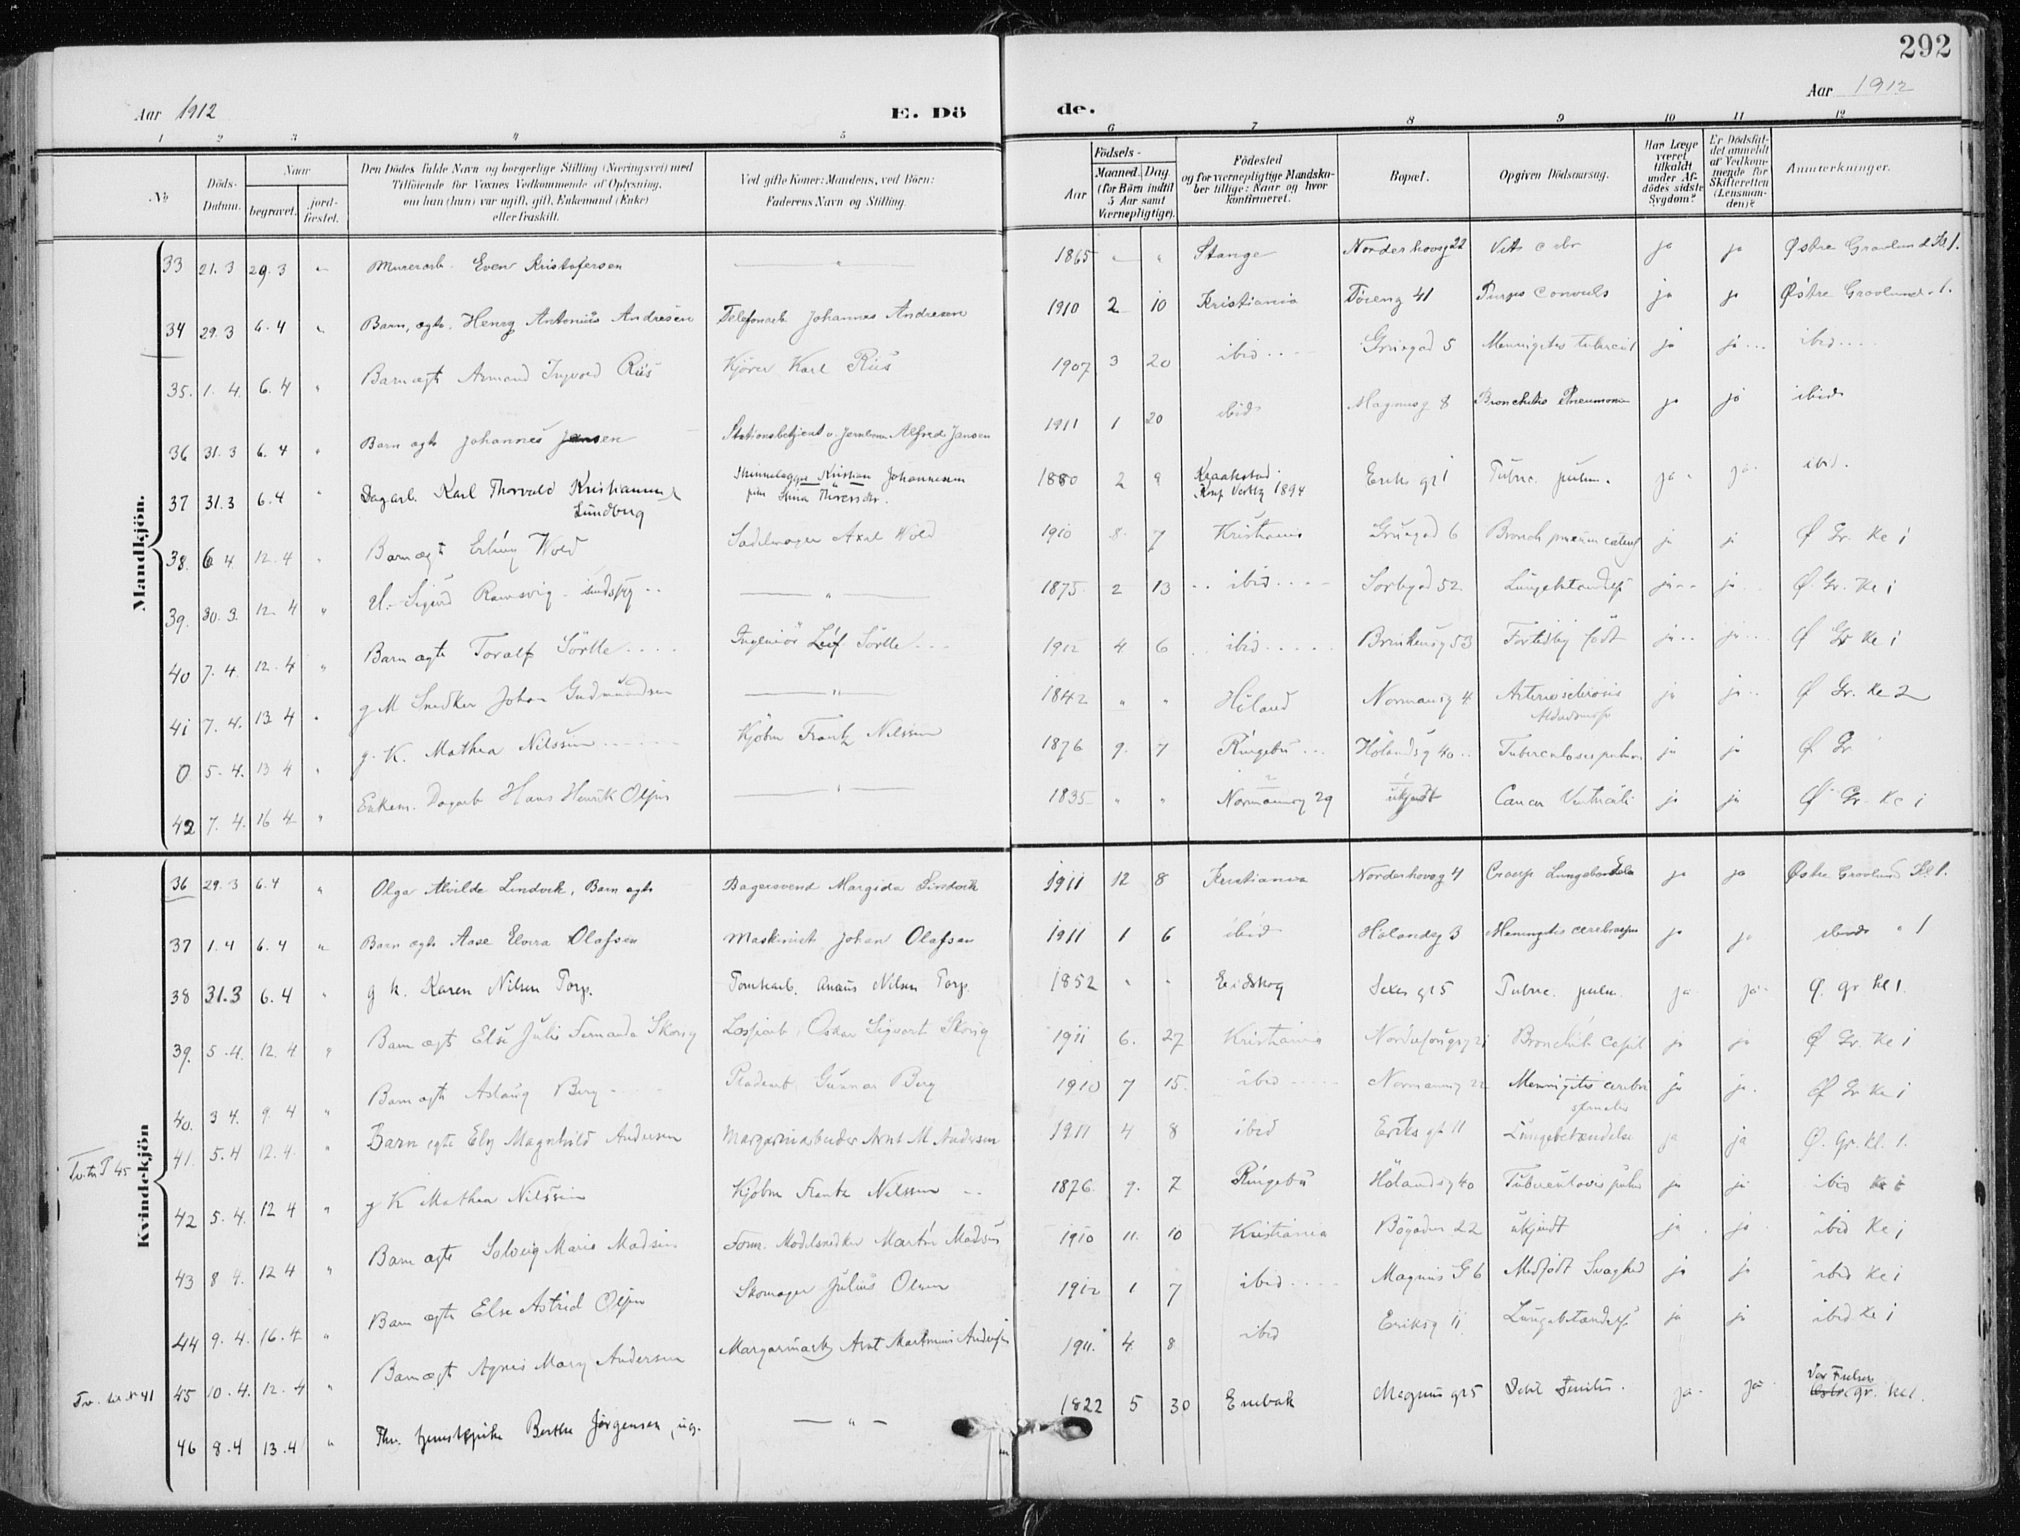 292
Aar 1912
E. Dö
de.
Aar 1912
1 2 3 4 5 6 7 8 9 10 11 12
№
Döds-Datum.
Naar
begravet.
jordfæstet.
Den Dödes fulde Navn og borgerlige Stilling (Næringsvei) med
Tilföiende for Voxnes Vedkommende af Oplysning,
om han (hun) var ugift, gift, Enkemand (Enke)
eller fraskilt.
Ved gifte Koner: Mandens, ved Börn:
Faderens Navn og Stilling.
Födsels-
Aar
Maaned. Dag.
(for Börn indtil
5 Aar samt
Værnepligtige).
Födested
og for værnepligtige Mandskaber tillige: Naar og hvor
konfirmeret.
Bopæl.
Opgiven Dödsaarsag.
Har Læge været tilkaldt under Afdödes sidste Sygdom?
Er Dödsfaldet anmeldt af Vedkommende for Skifteretten (Lensmanden)?
Anmerkninger.
Mandkjön.
33 21.3 29.3 " Murerarb. Even Kristofersen " 1865 " " Stange Norderhovsg 22 ja ja Østre Gravlund Kl 1.
34 29.3 6.4 " Barn, ægte, Henry Antonius Andresen Telefonarb Johannes Andresen 1910 2 10 Kristiania Tøieng 41 convuls ja ja Østre Gravlund 1.
35. 1.4. 6.4 " Barn ægt Armand Ingvald Riis Kjører Karl Riis 1907 3 20 ibid Grüegad 5 Meningitis tubercul ja ja ibid
36 31.3 6.4 " Barn ægte Johannes Jansen Stationsbetjent v. Jernbanen Alfred Jansen 1911 1 20 ibid Magnusg 8 Bronchitis Pneumonia ja ja ibid
37 31.3 6.4 " Dagarb. Karl Thorvald Kristiansen Lundberg Kristian Johannesen 1880 2 9 Kraakstad 1894 Eriks gt 1 Tubrc. pulm. ja ja ibid.
38. 6 4 12.4 " Barn ægt Erling Wold Sadelmager Axel Wold 1910 8 7 Kristiania Grüegad 6 Bronch ja ja Ø Gr. Kl 1
39. 30.3. 12.4 " U. Sigurd Ramsvig sindssyg " 1875 2 13 ibid Sorbygad 52 Lungebetændelse ja ja Ø. Gr. Kl 1
40 7.4. 12.4 " Barn ægte Toralf Sörlle Ingeniör Leif Sörlle 1912 4 6 ibid Brinkensg 53 Fortidlig født ja ja Ø Gr Kl 1
41 7.4. 13 4 " g M Snedker Johan Gudmundsen " 1842 " " Höland Normansg 4 Arteriosclerosis ja ja Ø Gr. Kl 2
0 5.4. 13 4 " g. K. Mathea Nilssen Kjöbm Frantz Nilssen 1876 9. 7 Ringebu Hölandsg 40 Tuberculosis pulm ja ja Ø Gr
42 7.4. 16 4 " Enkem. Dagarb Hans Henrik Olsen " 1835 " " Normansg 29 ukjendt Cancer Ventriculi ja ja Ø Gr. Kl 1
Kvindekjön
36 29.3 6.4 " Olga Alvilde Lindvik, Barn ægte Bagersvend Lindvik 1911 12 8 Kristiania Norderhovsg 4 ja ja Østre Gravlund Kl 1.
37 1.4 6.4 " Barn ægte Aase Elvira Olafsen Maskinist Johan Olafsen 1911 1 6 ibid Hølandsg 3 Meningitis cerebrospin ja ja ibid " 1
38 31.3 6.4 " g k. Karen Nilsen Torp. Tomtearb. Nilsen Torp. 1852 " " Eidskog gt 5 Tubrc. pulm. ja ja Ø. gr Kl 1.
39. 5.4. 12.4 " Barn ægte Else Julie Fernanda Skorig Lossearb. Oskar Sigvart Skorig 1911 6. 27 Kristiania Bronchit capil ja ja Ø Gr. Kl 1
40. 3 4. 9 4 " Barn ægte Aslaug Berg Gunnar Berg 1910 7 15. ibid Normannsg 22 Meningitis cerebro spinalis ja ja Ø Gr Kl 1
Tv. til № 45 41. 5.4 12.4. " Barn ægte Ely Magnhild Andersen Margarinarbeider Arnt M Andersen 1911 4 8 ibid Eriks gt 11 Lungebetændelse ja ja Ø. Gr. Kl. 1.
42 5.4. 12 4 " g K Mathea Nilssen Kjöbm Frantz Nilssen 1876. 9. 7 Ringebu Hölandsg 40 Tuberculosis pulm ja ja ibid Kl 1
43 8 4. 12 4 " Barn ægte Solveig Marie Madsen Form. Modelsnedker Martin Madsen 1910 11. 10 Kristiania Bögaden 22 ukjendt ja ja ibid Kl 1
44 9.4. 16.4. " Barn ægte Else Astrid Olsen Skomager Julius Olsen 1912 1 7 ibid Magnus G 6 Medfödt Svaghed ja ja ibid Kl 1
Tv. til № 41 45 10.4. 12.4 " Barn ægt Agnes Mary Andersen Margarinarb Arnt Martinius Andersen 1911. 4. 8 ibid Eriksg 11 Lungebetændelse ja ja ibid Kl 1
46 8.4 13.4 " Berthe Jørgensen, ug. " 1822 5 30 Enebak Magnus gt 5 ja ja Vor Frelsers gr. Kl 1.